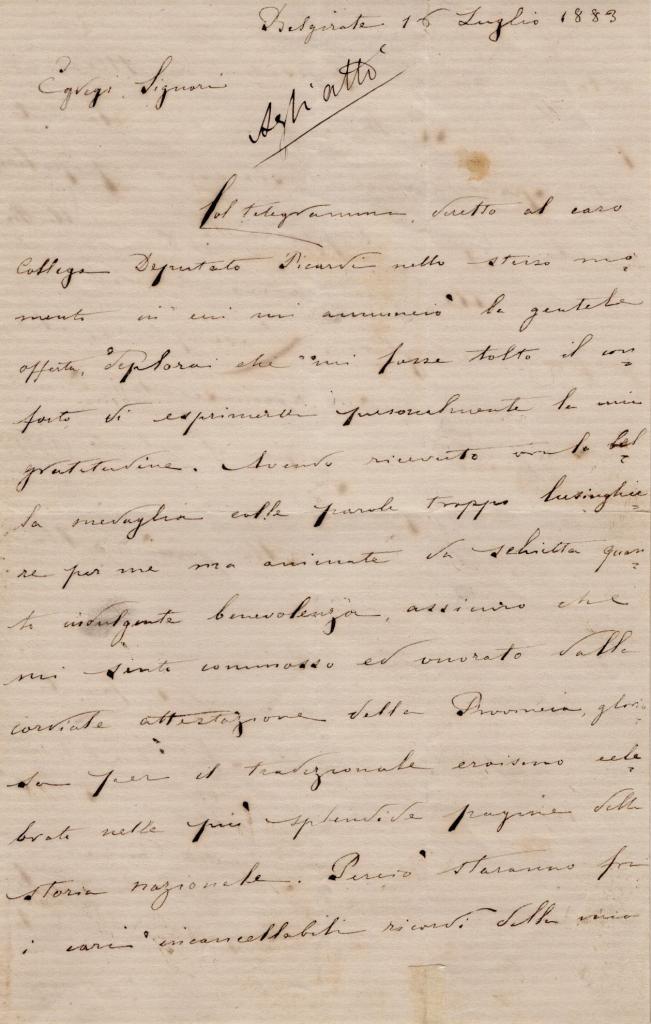 Belgirate 16 Luglio 1883
Egregi Signori
Agli atti
Col telegramma diretto al caro
Collega Deputato Picardi nello stesso mo=
mento in cui mi annunciò la gentile
offerta, deplorai che mi fosse tolto il con=
forto di esprimere personalmente la mia
gratitudine. Avendo ricevuto ora la bel=
la medaglia colle parole troppo lusinghie=
re per me ma animate da schietta quan=
to indulgente benevolenza, assicuro che
mi sento commosso ed onorato dalla
cordiale attestazione della Provincia, glorio=
sa per il tradizionale eroismo cele=
brato nelle più splendide pagine della
storia nazionale. Perciò staranno fra
i cari incancellabili ricordi della mia